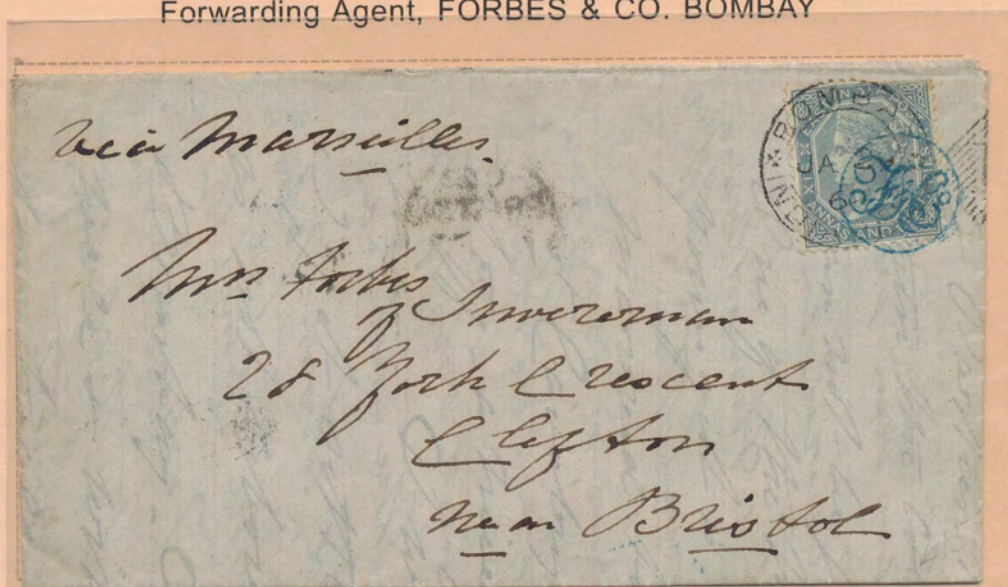 Forwarding Agent, FORBES & CO. BOMBAY
via Marseilles
BOMBAY
JA
ANNAS AND
Mrs Forbes
of Inverernan
28 York Crescent
Clifton
near Bristol